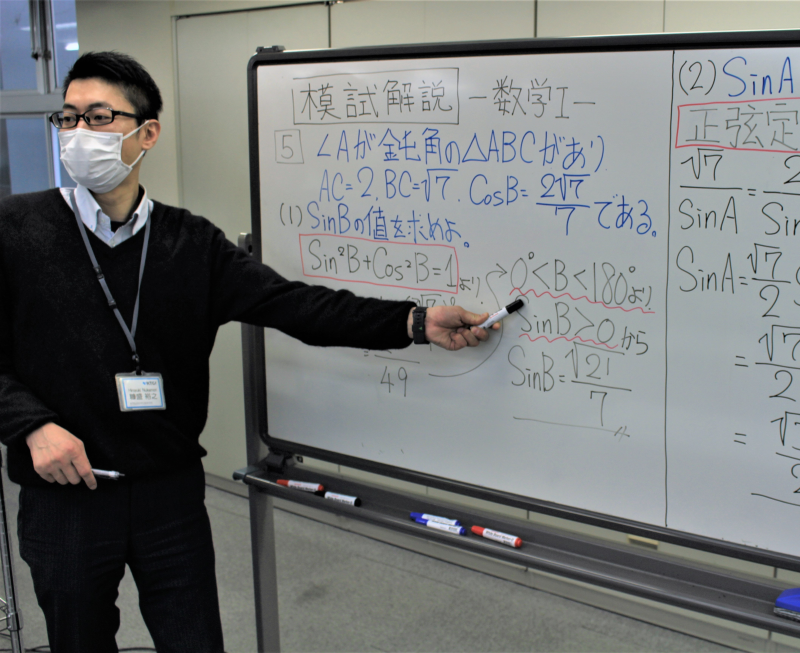 模試解説 -数学I-
5 ∠Aが鈍角の△ABCがあり
AC=2, BC=√7, CosB=2√7/7である。
(1) SinBの値を求めよ。
Sin²B+Cos²B=1より
49
0°<B<180°より
SinB>0から
SinB=√21/7
(2) SinA
正弦定
√7/SinA = 2/Sin
SinA=√7/2
=√7/2
=√7/2